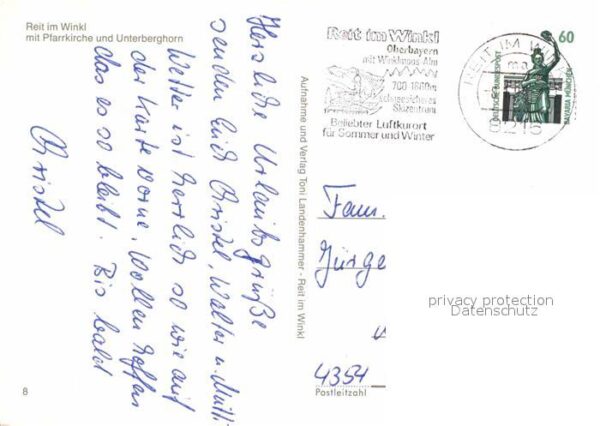 Reit im Winkl
mit Pfarrkirche und Unterberghorn
Herzliche Urlaubsgrüße
senden Euch Christel, Walter u. Mutti
Wetter ist herrlich so wie auf
der Karte vorne. Wollen hoffen
das es so bleibt. Bis bald
Christel
8
Aufnahme und Verlag Toni Landenhammer - Reit im Winkl
Reit im Winkl
Oberbayern
mit Winklmoos-Alm
700-1800m
schneesicheres
Skizentrum
Beliebter Luftkurort
für Sommer und Winter
REIT IM WI
60
DEUTSCHE BUNDESPOST
BAVARIA MÜNCHEN
Fam.
Jürge
privacy protection
Datenschutz
4354
Postleitzahl